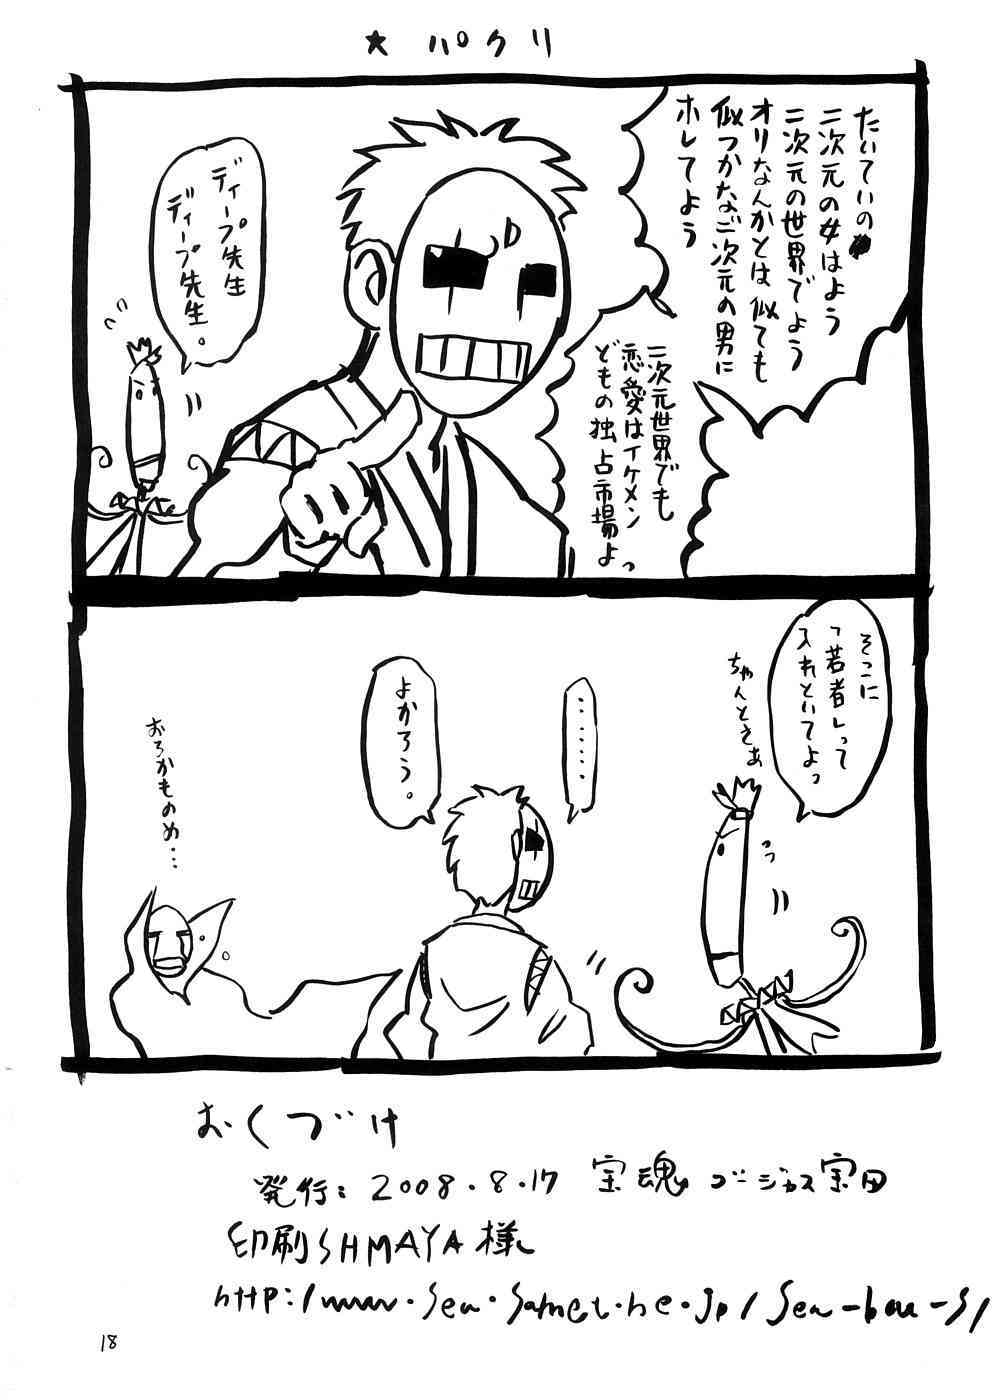 ★パクリ
たいていの
二次元の女はよう
二次元の世界でよう
オリなんかとは似ても
似つかなご次元の男に
ホレてよう
二次元世界でも
恋愛はイケメン
どもの独占市場よっ
ディープ先生
ディープ先生。
そこに
「若者」って
入れといてよっ
ちゃんとさぁ
・・・・・・
よかろう。
おろかものめ・・・
おくづけ
発行:2008.8.17 宝魂 ゴージャス宝田
印刷SHMAYA様
18